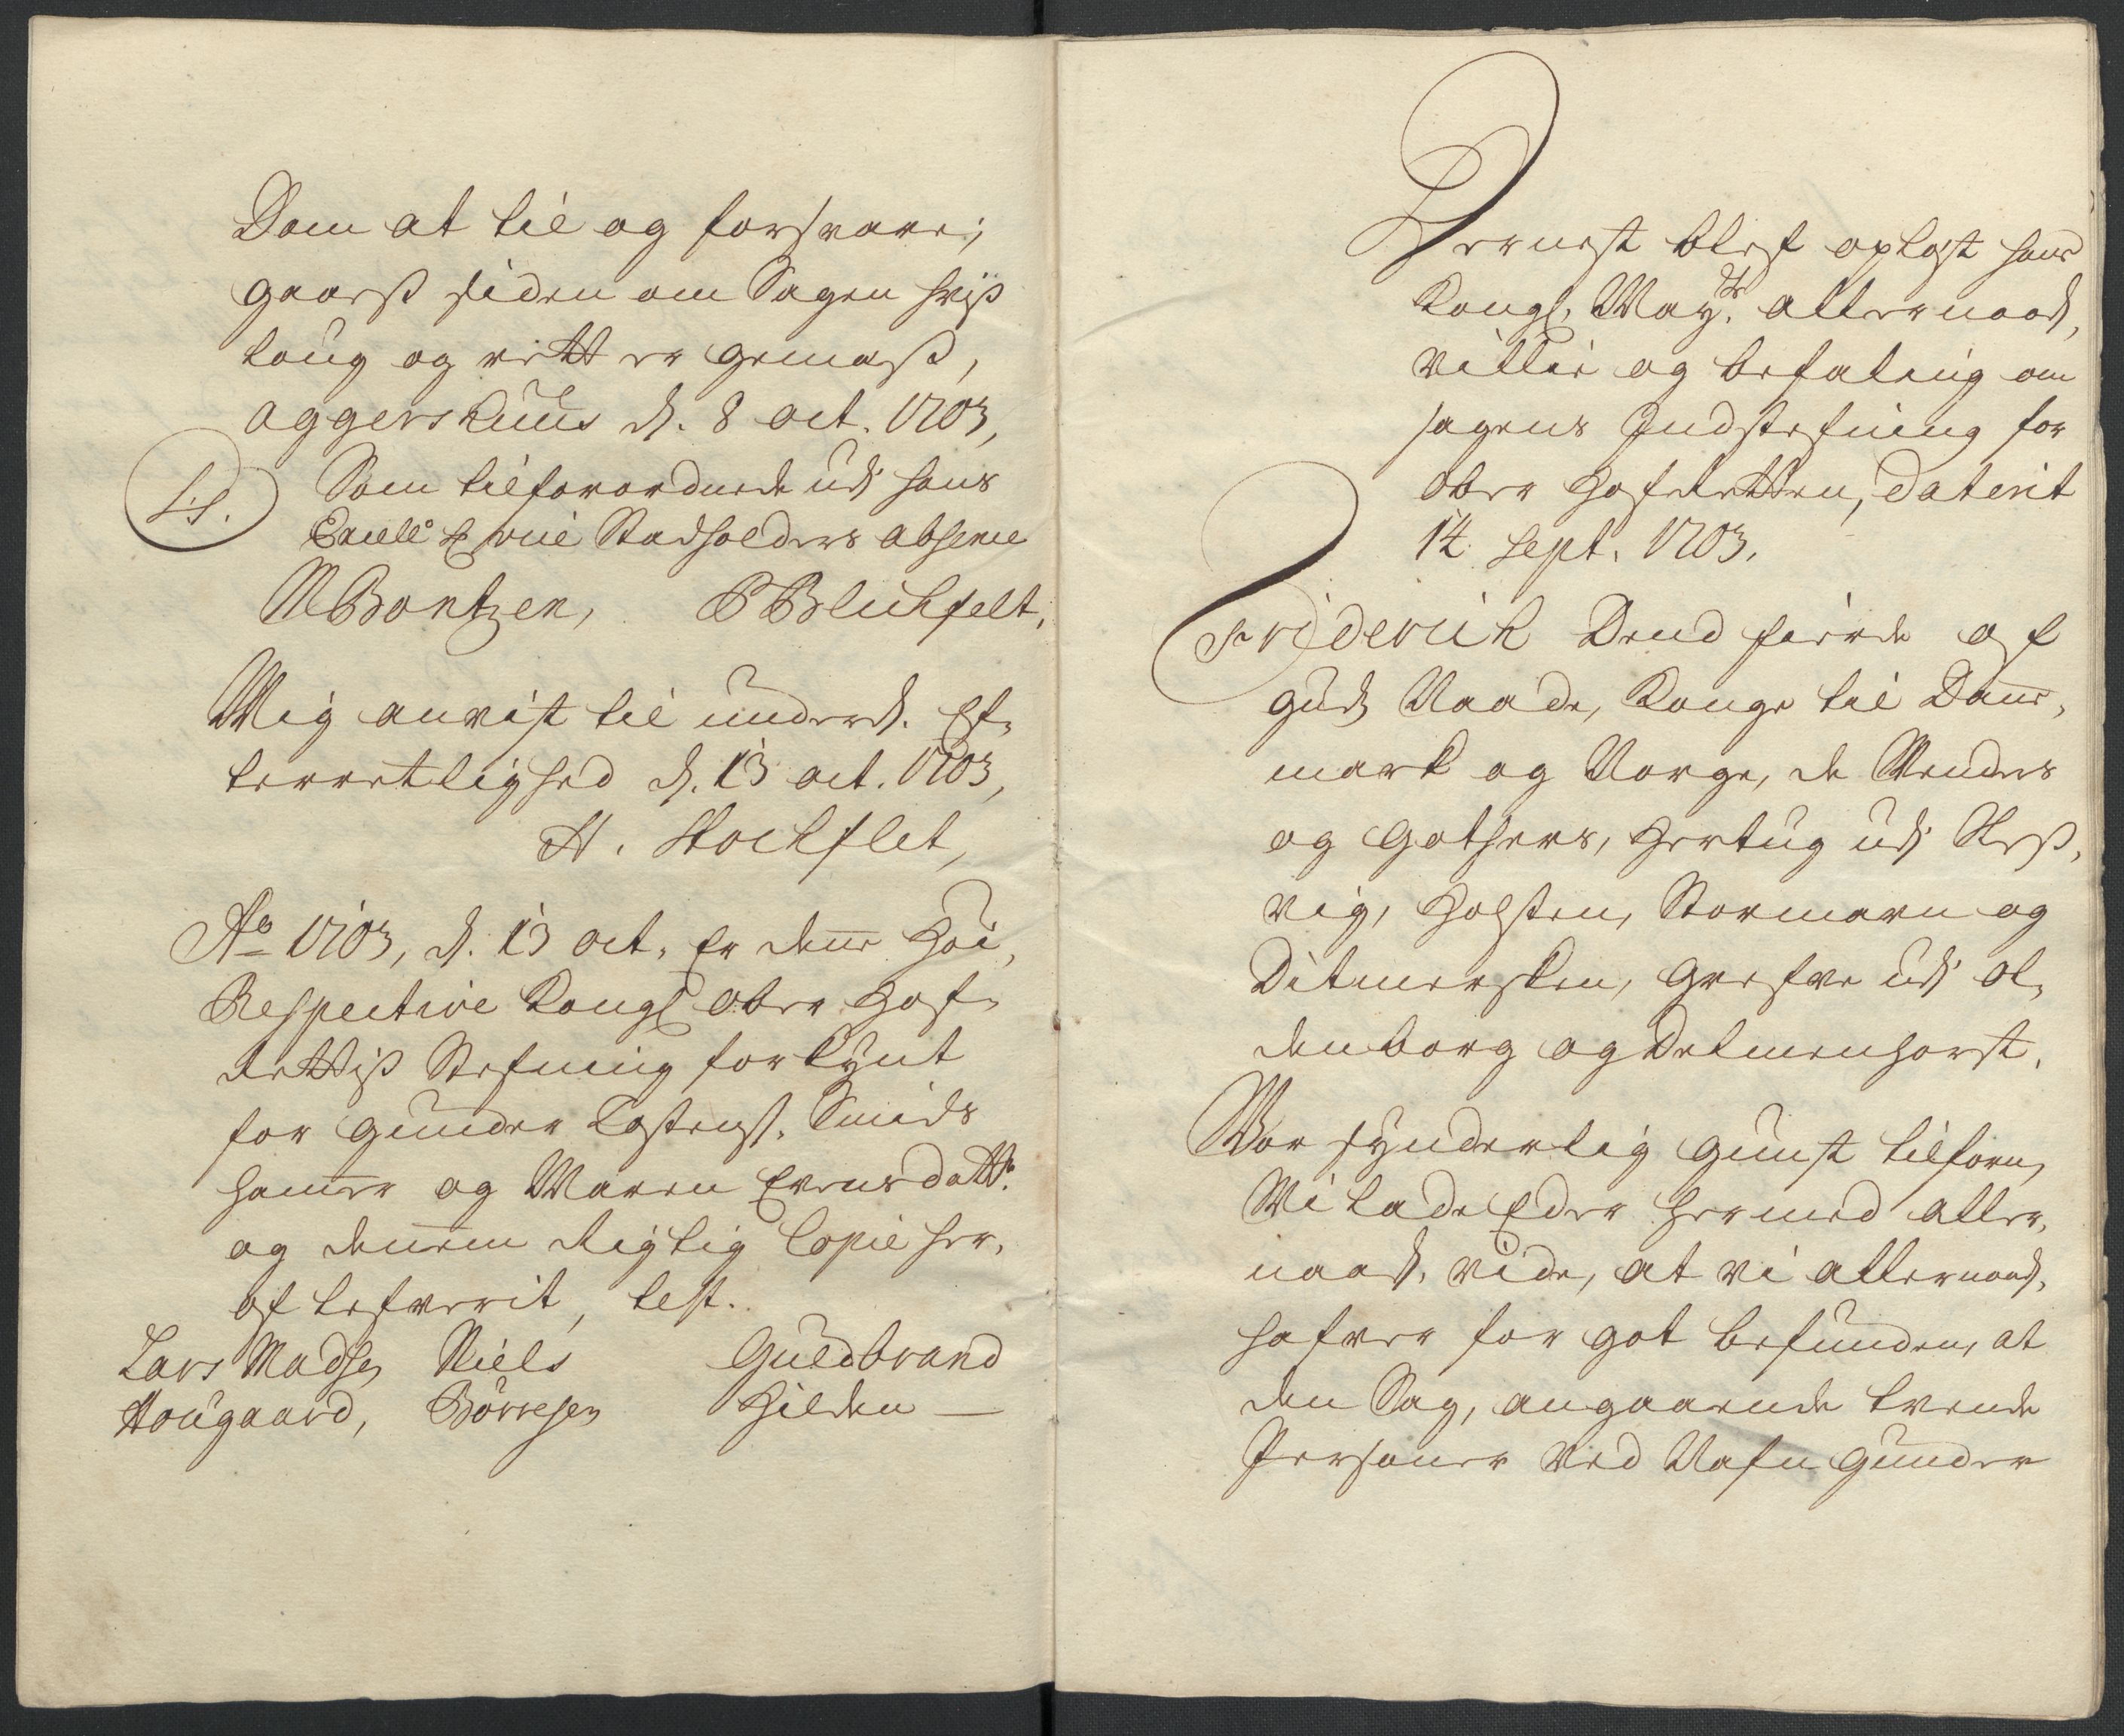 Dom at lie og forsvare;
gaars siden om Sagen hvis
loug og rett er gemæs,
Aggershuus d. 8 oct. 1703,
L.S. Som tilforordnede udj hans
Excell: H. vice Stadholders absence
MBorntzen, PBlichfelt.
Mig anvist til underd. Ef-
terretlighed d. 13 oct. 1703,
H. Stockflet,
Ao 1703, d. 13 oct. Er denne Høi,
Respective Kongl. Ober Hof-
Rettis Stefning forkynt
for Gunder Tostens. Smids
hamer og Maren Evensdattr.
og dennem Rigtig Copie her-
af lefverit, test.
Lars Madsen Niels Guldbrand
Hougaard, Börresen Hilden —
Dernest blef oplæst hans
Kongl. Mayts. allernaad,
villie og befaling om
sagens Indstefning for
Ober Hofretten, daterit
14 Sept. 1703.
Friderich Dend fierde af
Guds Naade, Konge til Danne,
mark og Norge, de Wenders
og Gothers, Hertug udj Sles,
vig, Holsten, Stormarn og
Ditmersken, Grefve udj Ol,
denborg og Delmenhorst.
Wor synderlig Gunst tilforn,
Wi lade Eder hermed aller,
naad. vide, at vi allernaad.
hafver for got befunden, at
den Sag, angaaende tvende
Personer ved Nafn Gunder